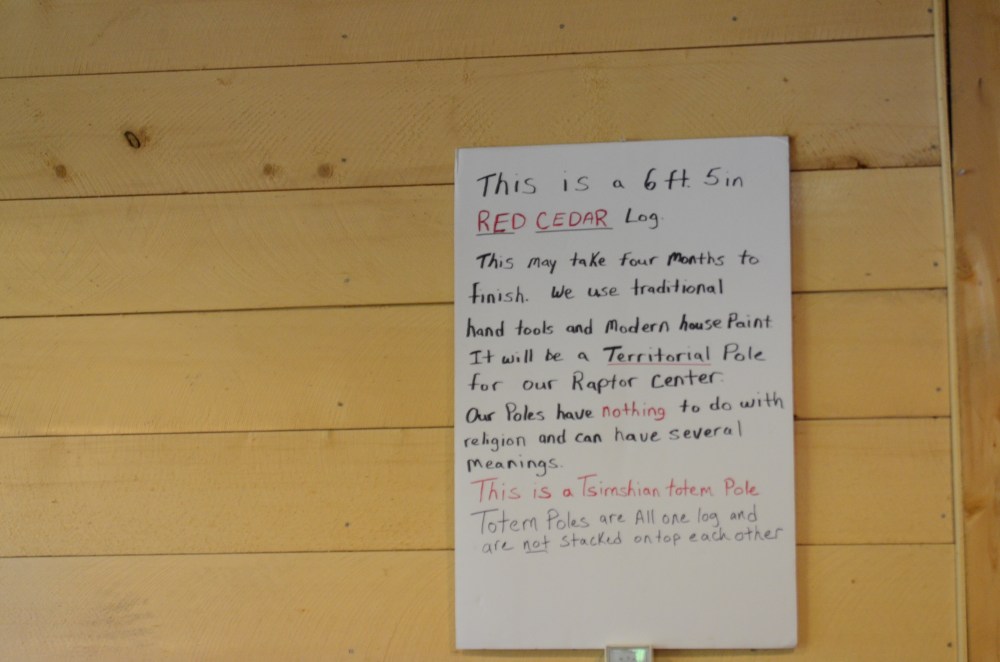 This is a 6 ft. 5in
RED CEDAR Log.
This may take four Months to
finish. We use traditional
hand tools and Modern house Paint
It will be a Territorial Pole
for our Raptor Center.
Our Poles have nothing to do with
religion and can have several
meanings.
This is a Tsimshian totem Pole
Totem Poles are All one log and
are not stacked on top each other